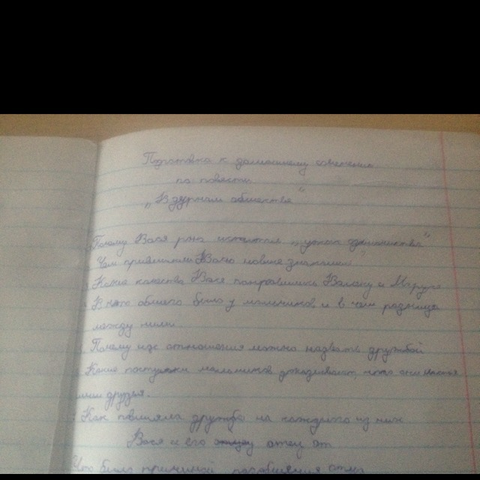 Подготовка к домашнему сочинению
по повести
„В дурном обществе“
Почему Вася рано испытал „ужас одиночества“
Чем привлекли Васю новые знакомые
Какие качества Васе понравились Валеку и Марусе
В чем общего было у мальчиков и в чем разница
между ними
Почему их отношения можно назвать дружбой
Какие поступки мальчиков доказывают, что они
друзья.
Как повлияла дружба на каждого из них
Вася и его отец от
Что было причиной отца